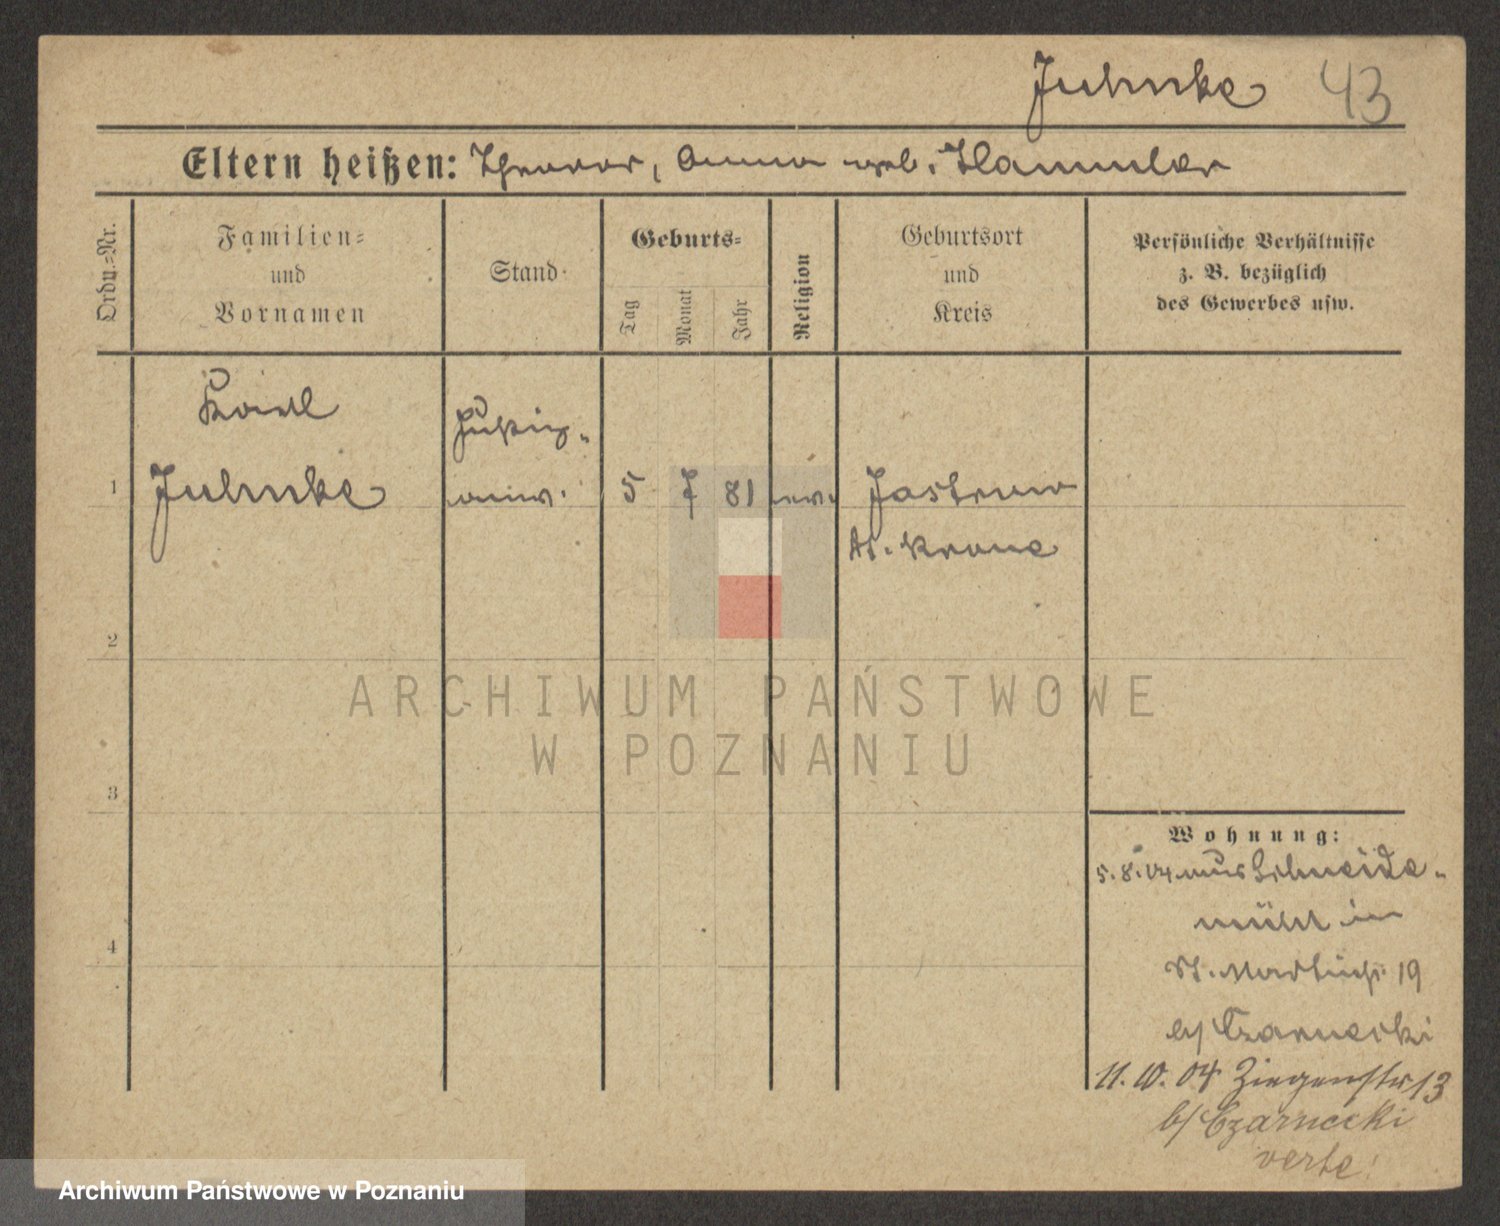 Juhnke 43
Eltern heißen: Theodor, Anna geb. Hammler
Ordn.=Nr.
Familien=
und
Vornamen
Stand
Geburts=
Tag
Monat
Jahr
Religion
Geburtsort
und
Kreis
Persönliche Verhältnisse
z. B. bezüglich
des Gewerbes usw.
Karl
1 Juhnke 5 7 81 ev. Jastrow
Dt. Krone
2
ARCHIWUM PAŃSTWOWE
W POZNANIU
3
Wohnung:
5.8.04 aus Schneide-
mühl in
St. Martinstr. 19
b/ Czarnecki
4
11.10.04 Ziegenstr 13
b/ Czarnecki
verte!
Archiwum Państwowe w Poznaniu